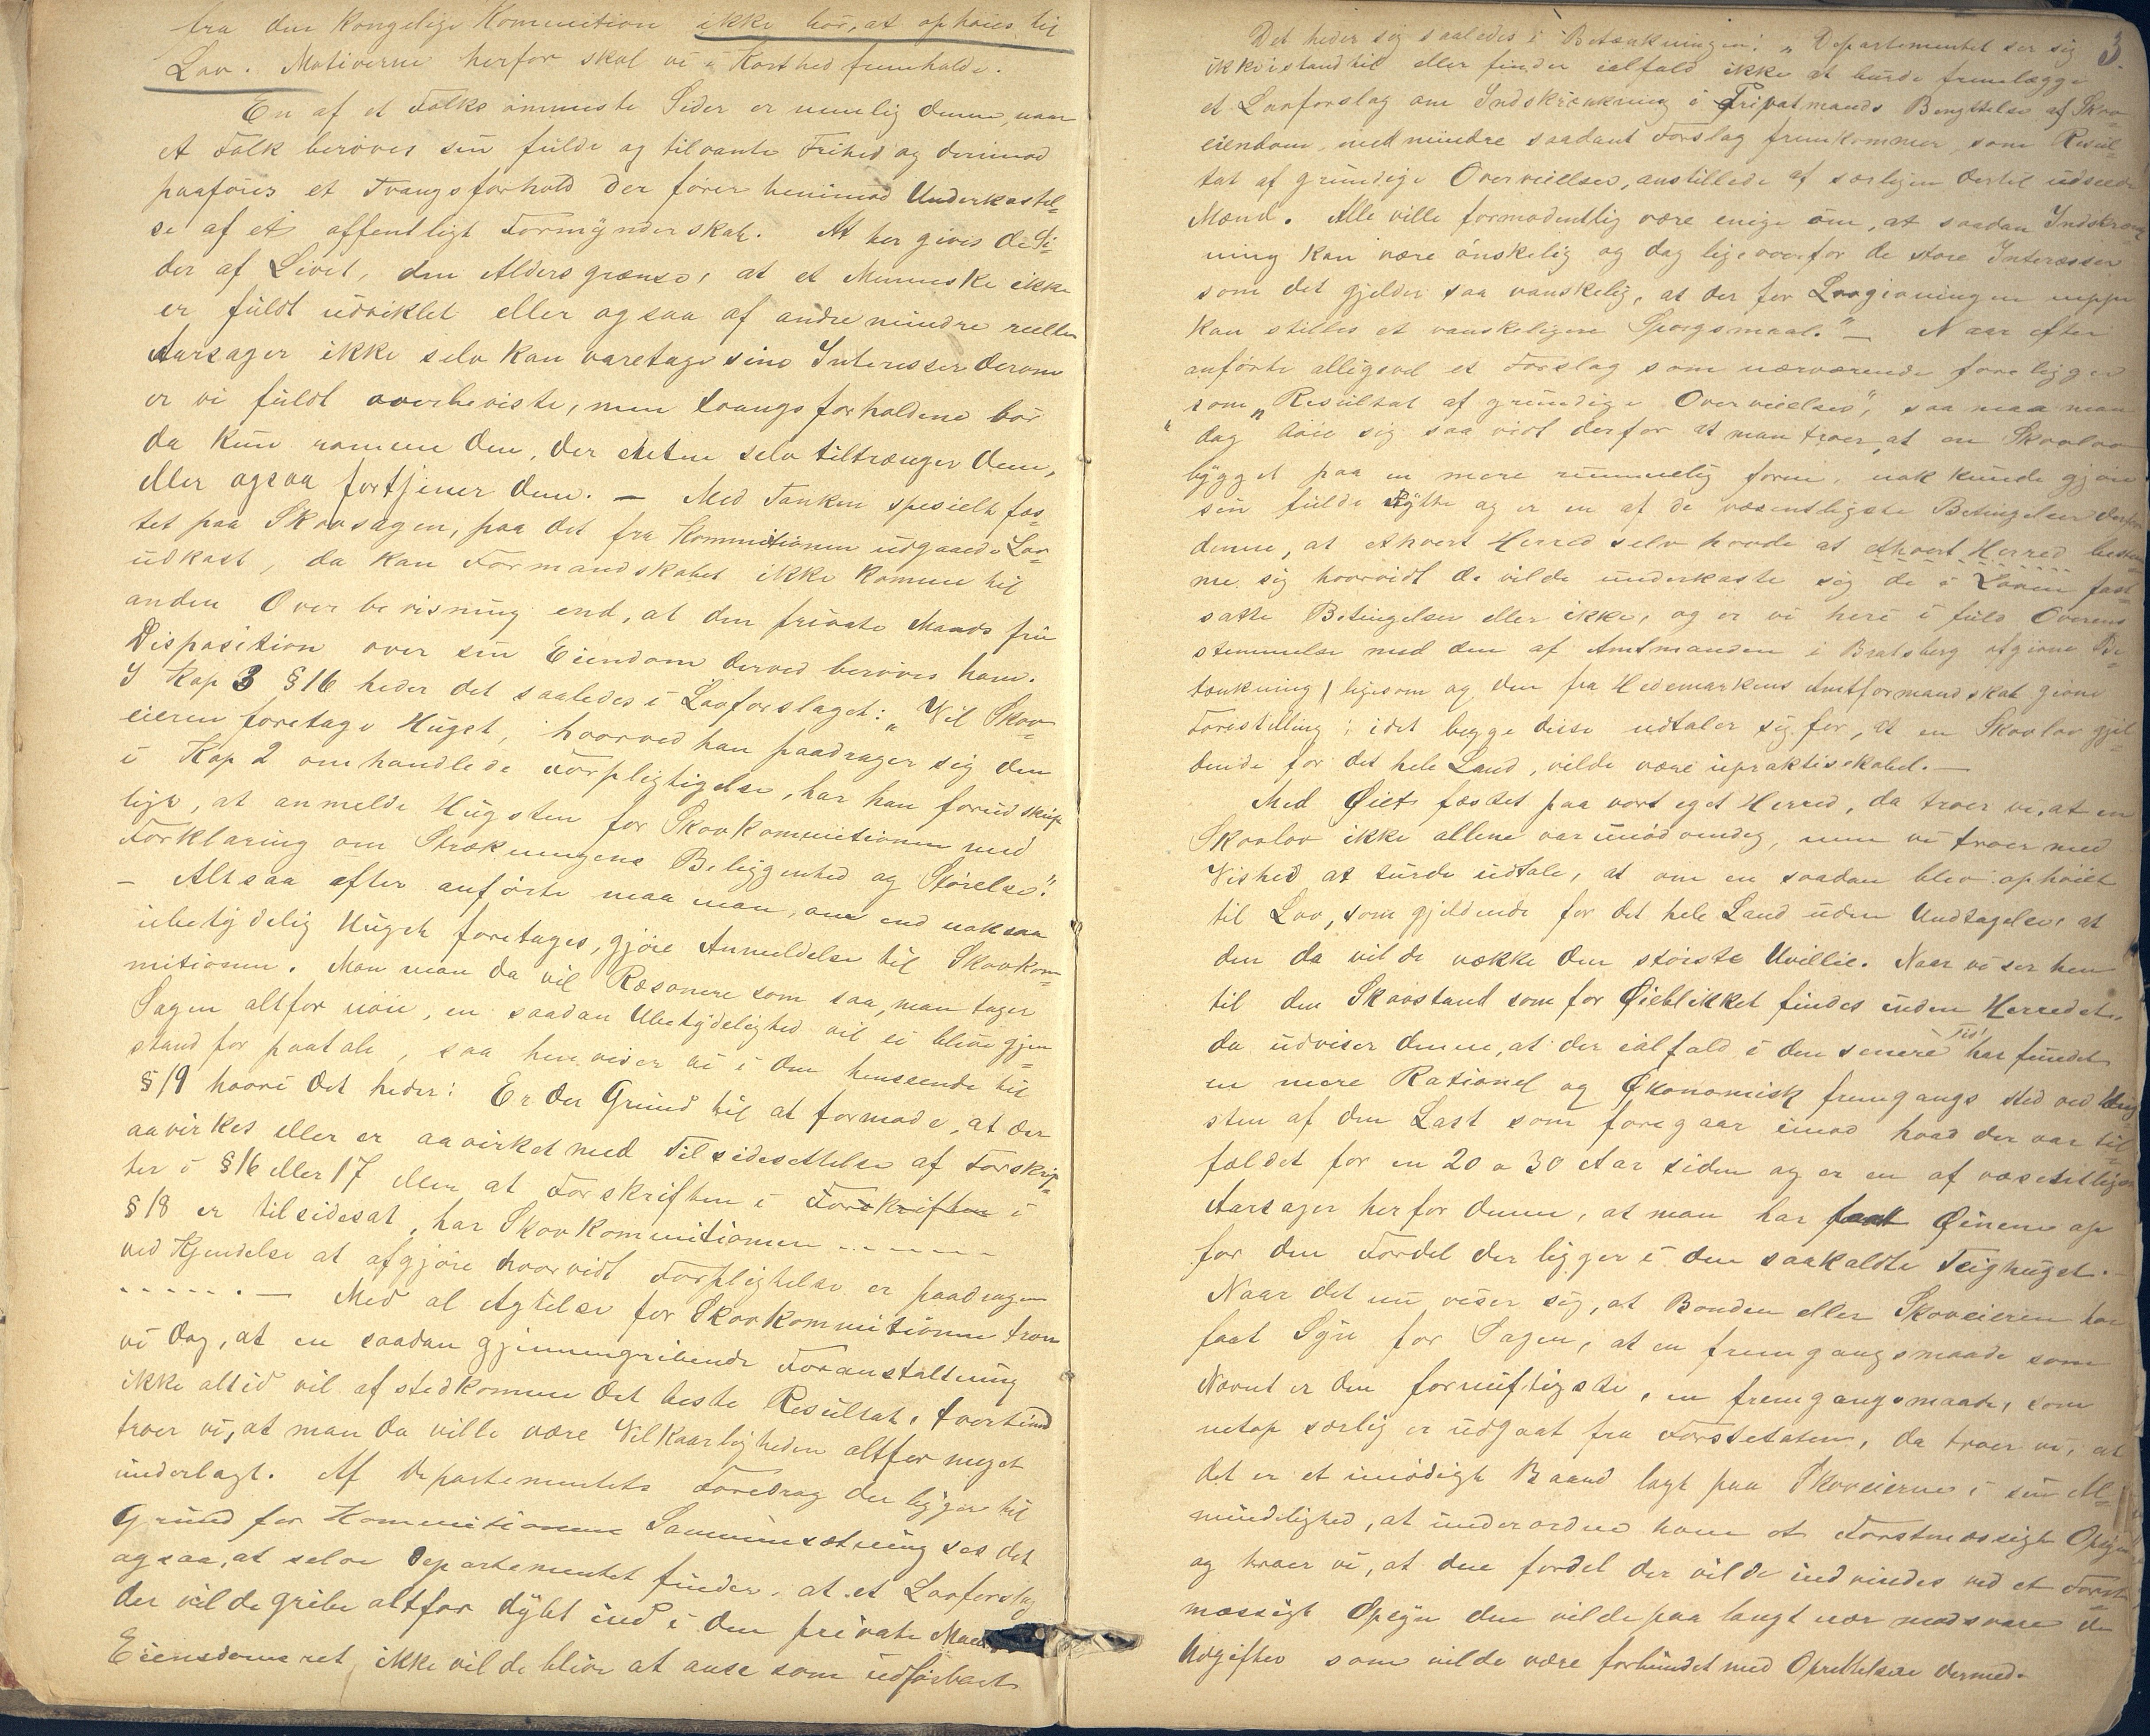 fra den Kongelige Kommission ikke bör, at ophöies til
Lov. Motiverne herfor skal vi i Korthed fremholde.
En af et Folks ömmeste Sider er nemlig denne, naar
et Folk beröves sin fulde og tilvante Frihed og derimod
paaföres et Tvangsforhold der förer henimod Underkastel-
se af et offentligt Formynderskab. At her gives de Si-
der af Livet, den Aldersgrænse, at et Menneske ikke
er fuldt udviklet eller ogsaa af andre mindre reelle
Aarsager ikke selv kan varetage sine Interesser derom
er vi fuldt overbeviste, men tvangsforholdene bör
da kun ramme den, der eneten selv tiltrænger dem,
eller ogsaa fortjener dem. — Med Tanken spesielt fæs-
tet paa Skovsagen, paa det fra Kommitionen udgaaede Lov-
udkast, da kan Formandskabet ikke komme til
anden Overbevisning end, at den private Mands frie
Disposition over sin Eiendom derved beröves ham.
I Kap 3 §16 heder det saaledes i Lovforslaget: „Vil Skov-
eieren foretage Hugst, hvorved han paadrager sig den
i Kap 2 omhandlede Forpligtigelse, har han forud skrift-
ligt, at anmelde Hugsten for Skovkommitionen med
Forklaring om Strækningens Beliggenhed og Störelse."
— Altsaa efter anförte maa man, om end nok saa
ubetydelig Hugst foretages, gjöre Anmeldelse til Skovkom-
mitionen. Man man da vil Ræsonere som saa, man tager
Sagen altfor nöie, en saadan Ubetydelighed vil ei blive gjen-
stand for paatale, saa henviser vi i den henseende til
§19 hvori det heder: Er der Grund til at formode, at der
aavirkes eller er aavirket med Tilsidesettelse af Forskrif-
ter i §16 eller 17 eller at Forskriften i Forskriften i
§18 er tilsidesat, har Skovkommitionen - - - - - -
ved Kjendelse at afgjöre hvorvidt Forpligtelse er paadragen
- - - - - . — Med al Agtelse for Skovkommitionen troer
vi dog, at en saadan gjennemgribende Foranstaltning
ikke altid vil afstedkomme det beste Resultat, tvertimod
troer vi, at man da ville være Vilkaarligheden altfor meget
underlagt. Af Departementets Foredrag der ligger til
Grund for Kommitionens Sammensætning ses det
ogsaa, at selve Departementet finder, at et Lovforslag
der vilde gribe altfor dybt ind i den private Mands
Eiendomsret, ikke vilde blive at anse som udförbart
3.
Det heder sig saaledes i Betænkningen: „Departementet ser sig
ikke istand til eller finder ialfald ikke at burde fremlægge
et Lovforslag om Indskrænkning i Privatmands Benyttelse af Skov-
eiendom, medmindre saadant Forslag fremkommer som Resul-
tat af grundige Overveielser, anstillede af særligen dertil udseede
Mænd. Alle ville formodentlig være enige om, at saadan Indskrænk-
ning kan være önskelig og dog ligeoverfor de store Interesser
som det gjelder saa vanskelig, at der for Lovgivningen neppe
kan stilles et vanskeligere Spörgsmaal." — Naar efter
anförte alligevel et Forslag som nærværende foreligger
som „Resultat af grundige Overveielser", saa maa man
dog böie sig saa vidt derfor at man troer, at en Skovlov
bygget paa en mere rummelig form, nok kunde gjöre
sin fulde Nytte og er en af de væsentligste Betingelser derfor
denne, at ethvert Herred selv havde at ethvert Herred bestem-
me sig hvorvidt de vilde underkaste sig de i Loven fast-
satte Betingelser eller ikke, og er vi heri i fuld Overens-
stemmelse med den af Amtmanden i Bratsberg afgivne Be-
tænkning, ligesom og den fra Hedemarkens Amtformandskab givne
Forestilling; idet begge disse udtaler sig for, at en Skovlov gjel-
dende for det hele Land, vilde være upraktiskabel. —
Med Øiet fæstet paa vort eget Herred, da troer vi, at en
Skovlov ikke allene var unödvendig, men vi troer med
Vished at turde udtale, at om en saadan blev ophöiet
til Lov, som gjeldende for det hele Land uden Undtagelse, at
den da vilde vække den störste Uvillie. Naar vi ser hen
til den Skovstand som for Øieblikket findes inden Herredet,
da udviser denne, at der ialfald i den senere Tid har fundet
en mere Rationel og Økonomisk fremgangs sted ved Hug-
sten af den Last som foregaar imod hvad der var til-
fældet for en 20 a 30 Aar siden og er en af væsentligste
Aarsager herfor denne, at man har faaet Øinene op
for den Fordel der ligger i den saakaldte Teighugst. —
Naar det nu viser sig, at Bonden eller Skoveieren har
faaet Syn for Sagen, at en fremgangsmaade som
Nævnt er den fornuftigste, en fremgangsmaade, som
netop særlig er udgaat fra Forstetaten, da troer vi, at
det er et unödigt Baand lagt paa Skoveierne i sin Al-
mindelighed, at underordne ham et Forstmæssigt Opsyn
og troer vi, at den fordel der vilde indvindes ved et Forst-
mæssigt Opsyn den vilde paa langt nær modsvare de
Udgifter som vilde være forbundet med Oprettelsen dermed.